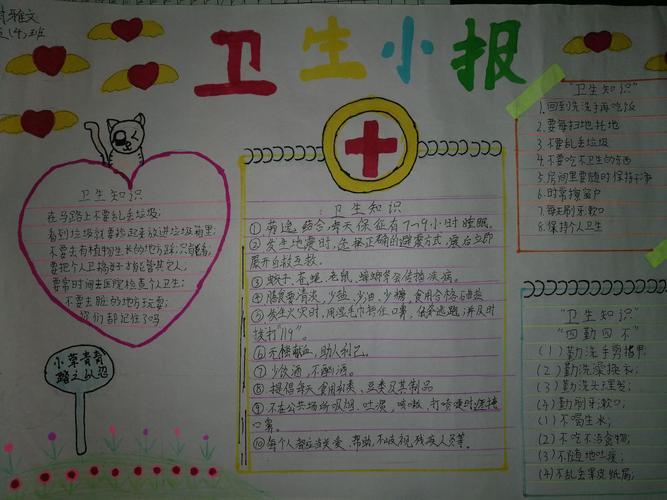 雅文
(4)班
卫生小报
卫生知识
在马路上不要乱丢垃圾;
看到垃圾就要捡起来放进垃圾箱里;
不要去有植物生长的地方踩;
要常时间去医院检查个人卫生;
不要去脏的地方玩耍;
你们都记住了吗
小草青青
踏之何忍
卫生知识
①劳逸结合,每天保证有7~9小时睡眠.
②发生地震时,选择正确的避震方式,震后立即
展开自救互救.
③蚊子、苍蝇、老鼠、蟑螂等会传播疾病.
④膳食要清淡,少盐、少油、少糖,食用合格碘盐
⑤发生火灾时,用湿毛巾捂住口鼻,低姿逃跑,并及时
拨打"119".
⑥无偿献血,助人利己.
⑦少饮酒,不酗酒.
⑧提倡每天食用奶类、豆类及其制品
⑨不在公共场所吸烟、吐痰,咳嗽、打喷嚏时遮掩
口鼻.
⑩每个人都应当关爱、帮助、不歧视残疾人员等.
"卫生知识"
1.回到先洗手再吃饭
2.要每扫地托地
3.不要乱丢垃圾
4.不要吃不卫生的东西
5.房间里要随时保持干净
6.时常擦窗户
7.每日刷牙漱口
8.保持个人卫生
"卫生知识"
"四勤四不"
(1)勤洗手剪指甲;
(2)勤洗澡换衣;
(3)勤洗头理发;
(4)勤刷牙漱口;
(1)不喝生水;
(2)不吃不洁食物;
(3)不随地吐痰;
(4)不乱丢果皮纸屑;